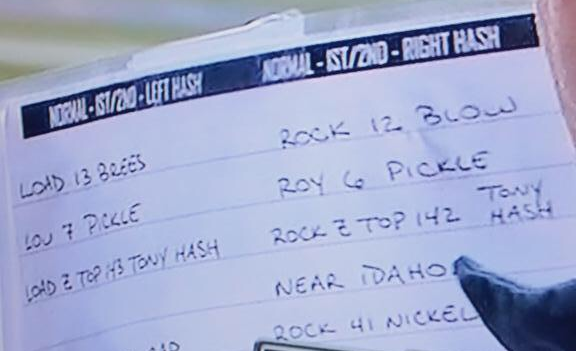 NORMAL - 1ST/2ND - LEFT HASH
LOAD 13 BREES
LOU 7 PICKLE
LOAD Z TOP 143 TONY HASH
NORMAL - 1ST/2ND - RIGHT HASH
ROCK 12 BLOW
ROY 6 PICKLE
ROCK Z TOP 142 TONY HASH
NEAR IDAHO
ROCK 41 NICKEL